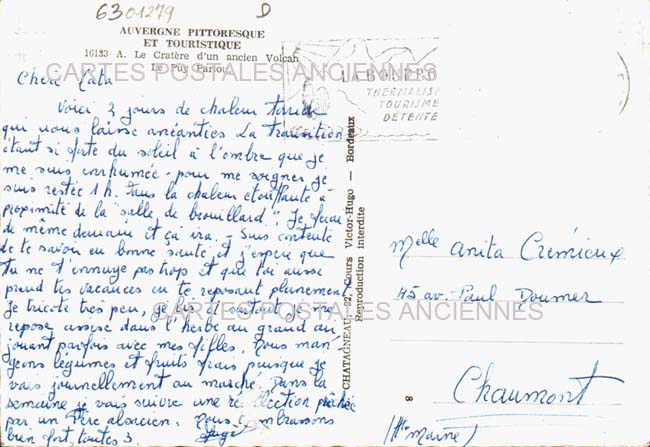 6301279
D
AUVERGNE PITTORESQUE
ET TOURISTIQUE
16133 A. Le Cratère d'un ancien Volcan
Le Puy Pariou
CARTES POSTALES ANCIENNES
LA BOURBOULE
THERMALISME
TOURISME
DÉTENTE
Chère Cata
Voici 2 jours de chaleur torride
qui nous laisse anéanties La transition
étant si forte du soleil à l'ombre que je
me suis enrhumée - pour me soigner je
suis restée 1 h. dans la chaleur étouffante à
proximité de la "salle de brouillard". Je ferai
de même demain et ça ira. - Suis contente
de te savoir en bonne santé et j'espère que
tu ne t'ennuye pas trop et que toi aussi
prend tes vacances en te reposant pleinement
Je tricote très peu, je lis et surtout je me
repose assise dans l'herbe au grand air
jouant parfois avec mes filles. Nous man-
geons légumes et fruits frais puisque je
vais journellement au marché. Dans la
semaine je vais suivre une récollection prêchée
par un Père alsacien. Nous t'embrassons
bien fort, toutes 3.
CHATAGNEAU, 92, Cours Victor-Hugo — Bordeaux
Reproduction interdite
8
Melle Anita Crémieux
45 av. Paul Doumer
CARTES POSTALES ANCIENNES
Chaumont
(Hte Marne)